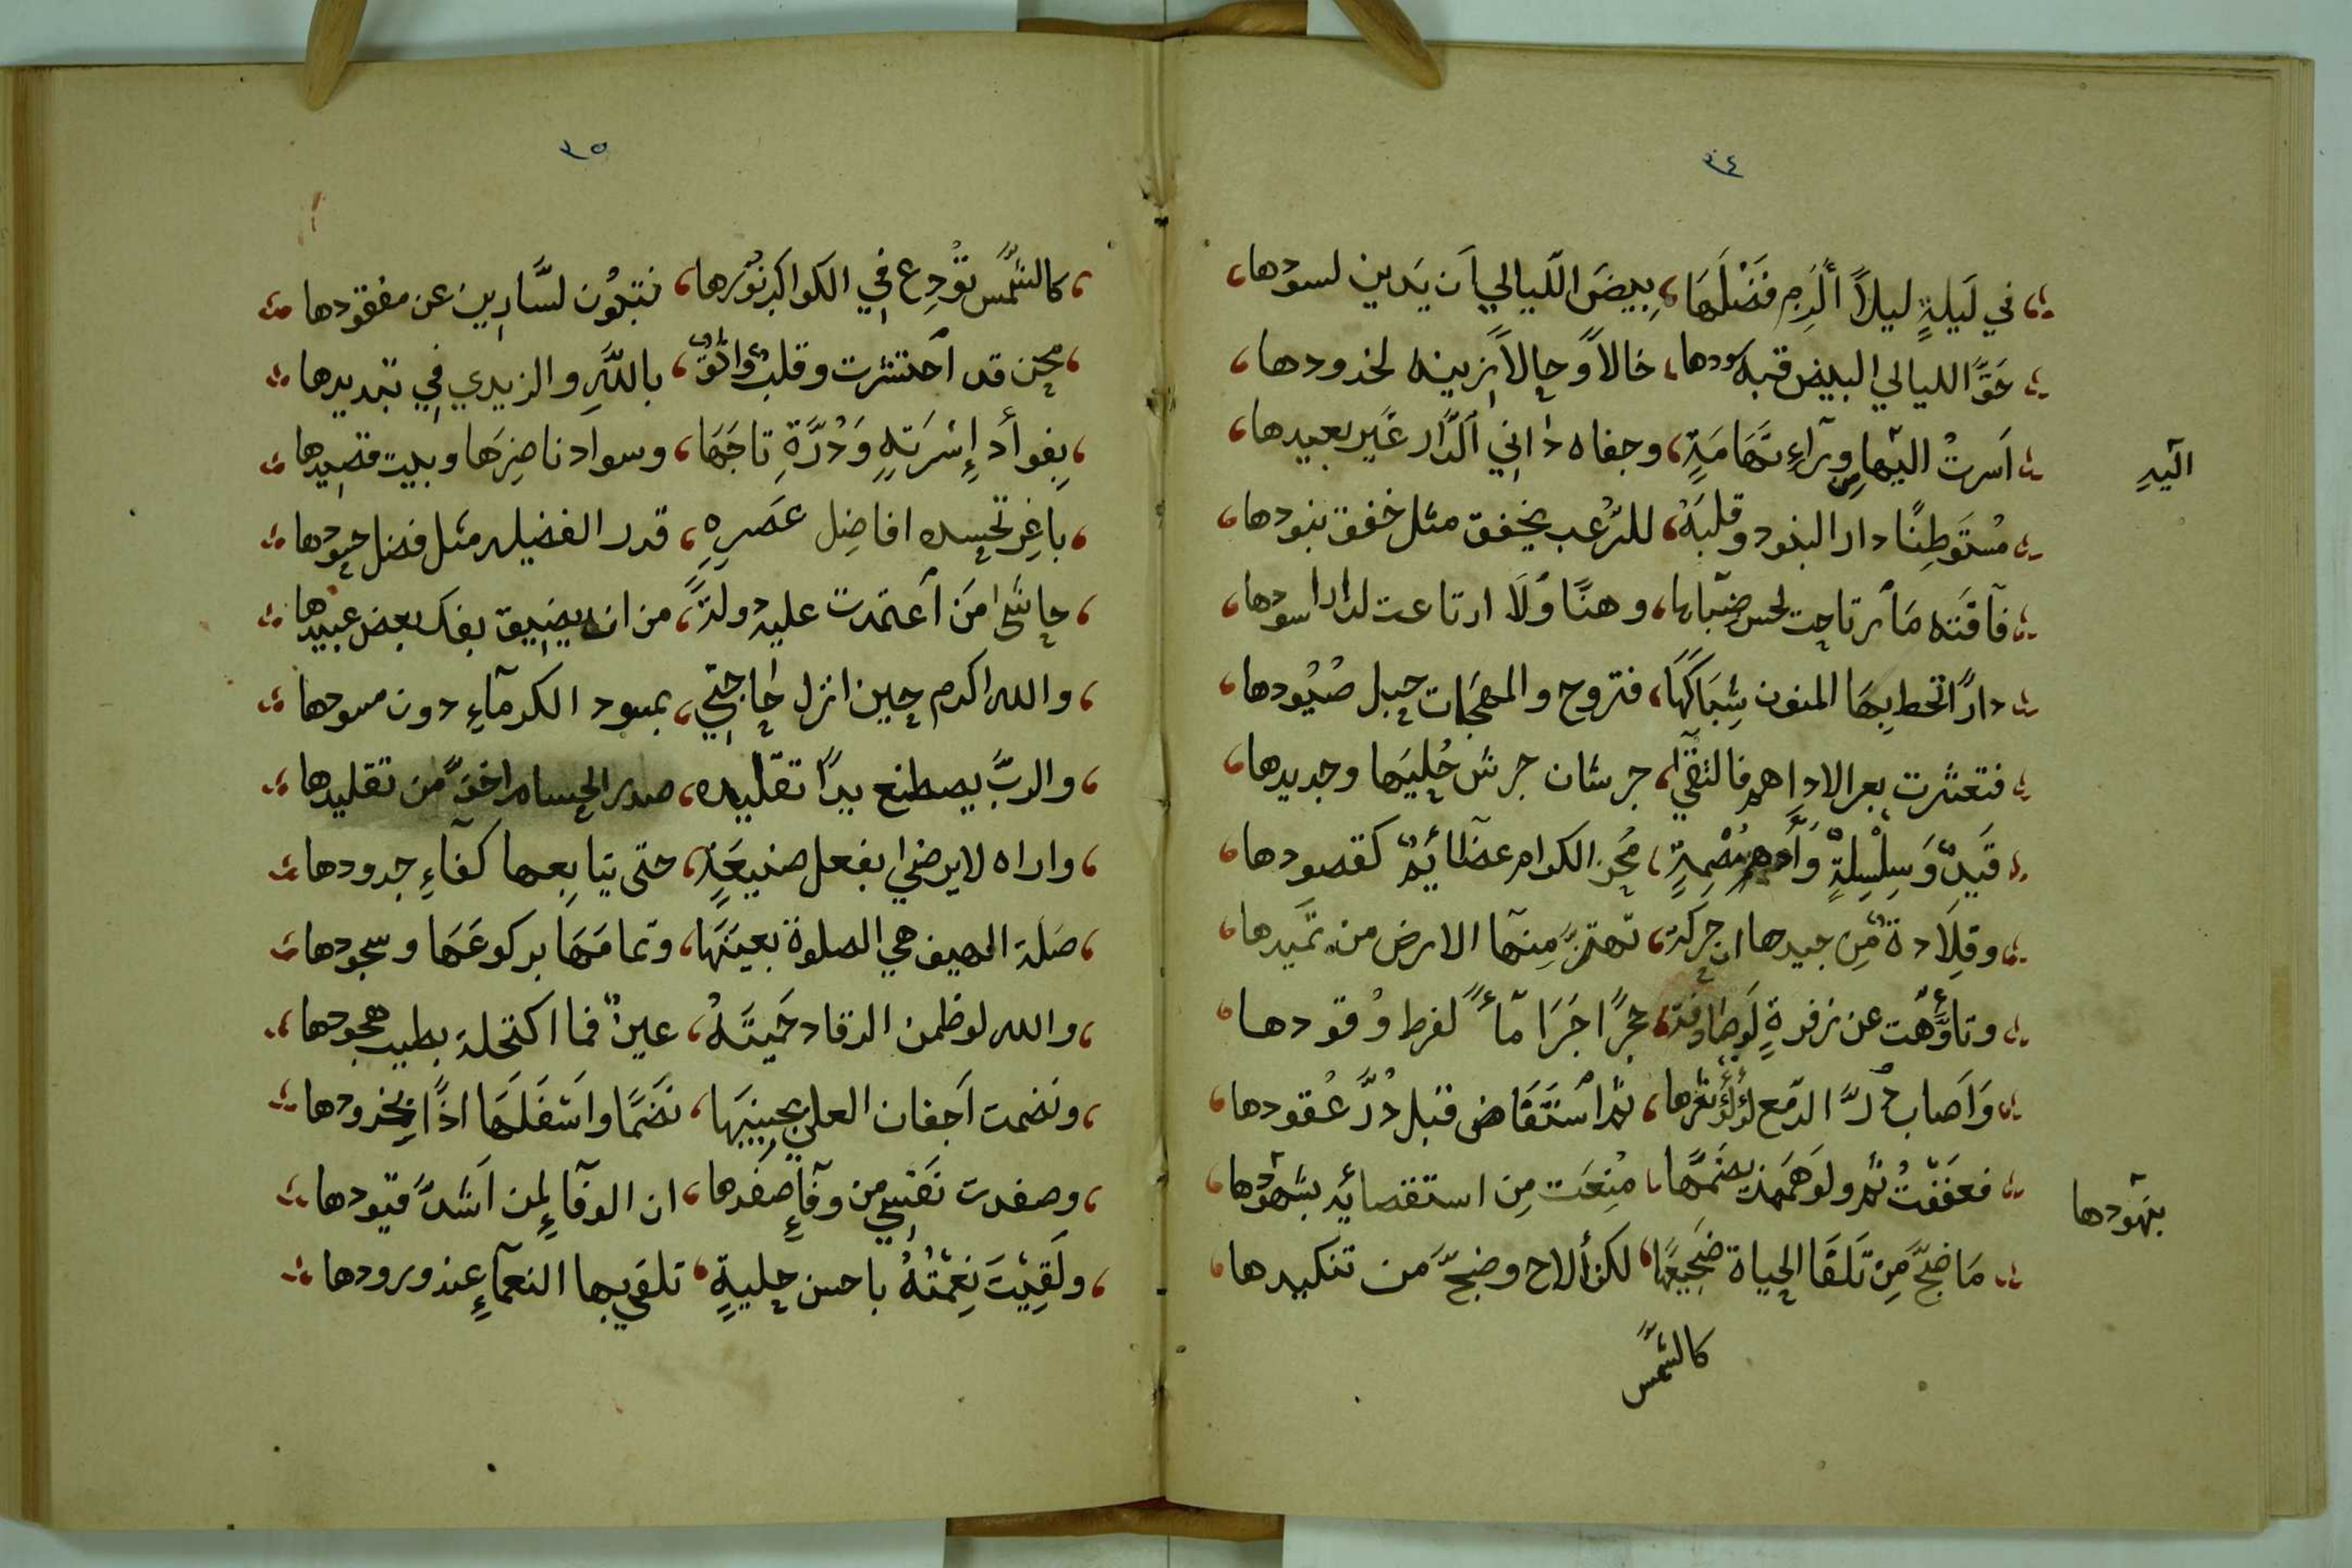 ٣٤
في لَيلةٍ ليلاً أَلَزِم فَضْلَهَا ، بِيضَ اللّيالي اَن يَدين لسودها
حَقّ الليالي البيض قبه سودها ، خالاً وحالاً زينه لخدودها
اَسرتْ اليها ورآءِ تَهَامَةٍ ، وجفاه داني اَلدّار غَير بعيدها
اليَدِ
مُستَوطِنًا دار البنود وقلبَهُ ، للرّعب يخفق مثل خفق بنودها
فآقَته مَا رتاحت لحسن ضبابها ، وهنًا وَلَا ارتاعت لدار اسودها
دارً اتحط بِهَا المنون شِبَاكَهَا ، فتروح والمهجات حبل صُيُودها
فتعثرت بعر الاداهم فالتقي ، جرشان جرش حُليَها وجديدها
قَيدٌ وَسِلْسِلةٌ وَأدهم ، مُحن الكرام عضائدٌ كقصودها
وقِلَادة مِّن جيدها ان حركت ، تهتزّ مِنهَا الارض من تَميدها
وتاوَّهت عن زفرةٍ لَو صادفت ، حجرًا جَرَا مآءً لفرط وُقودها
وَاَصاب دُرَّ الدّمع لؤلؤ ثغرها ، ثم اَستَقَاض قبل دُرَّ عُقودها
فعفَفّتُ ثم ولوهَمَمت بضَمّها ، مُنِعَت مِن استقصائه بشهودها
بنهودها
مَا ضجّ مِن تَلقَا الحياة ضَجيعهَا ، لكن ألاح وضجّ من تنكيدها
كالشّمس
٣٥
كالشّمس تُودِع في الكواكب نُورها ، فتبون لسَّارِين عن مفقودها
محن قد اَحتشرت وقلبٌ واثقٌ ، باللّهِ والزيدي في تبديدها
بِفوأد إسْرَتهِ وَدُرَّةِ تاجَهَا ، وسواد ناضِرَها وبيت قصيدها
باغِر تحسده افاضِل عَصَرهِ ، قدر الفضيله مثل فضل حسودها
حاشا مَن اَعتمدت عليه دولةً ، من انه يضيق بفك بعض عبيدها
والله اكرم حين انزل حاجتي ، بمسود الكرمآءِ دون مسودها
والربّ يصطنع يدًا تقليده ، صدر الحسام اخفّ من تقليدها
واراه لا يرضي بفعل صنيعَةٍ ، حتى يتابِعها كفآءِ جدودها
صَلة الضيف هي الصلوة بعينَهَا ، وتمامَهَا بركوعَهَا وسجودها
والله لو ظمن الرقاد حَميَتَهُ ، عينٌ فما اكتحلة بطيب هجودها
ونضمت اَجفان العلي بجبينِيهَا ، نَضَمًا واَسَفَلَهَا اذًا بخدودها
وصفدت نَفسي من وفآءٍ صفدها ، ان الوفآءِ لمن اَشدّ قيودها
ولَقِيْتَ نِعمْتُهُ باحسن حِليةٍ ، تلقي بها النعمآءِ عند ورودها